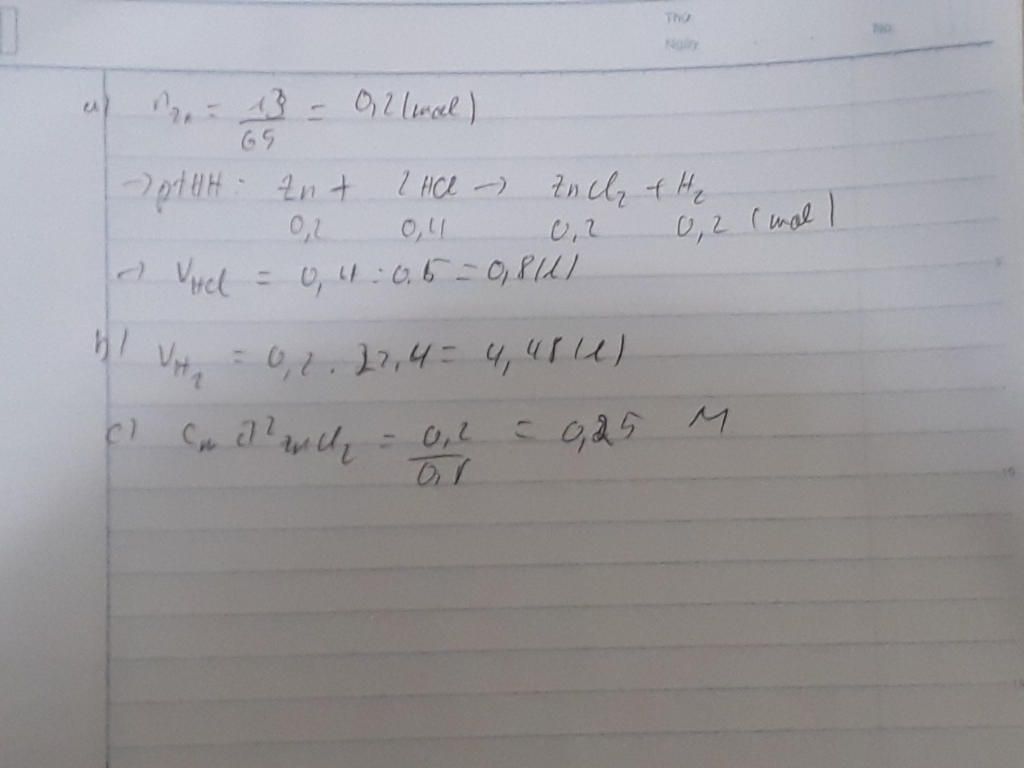 Thứ
Ngày
No.
a) n Zn = 13/65 = 0,2 (mol)
→ ptHH: Zn + 2HCl → ZnCl2 + H2
0,2 0,4 0,2 0,2 (mol)
→ VHCl = 0,4 : 0.5 = 0,8(l)
b) VH2 = 0,2 . 22,4 = 4,48(l)
c) CM d² ZnCl2 = 0,2/0,8 = 0,25 M
5
10
15